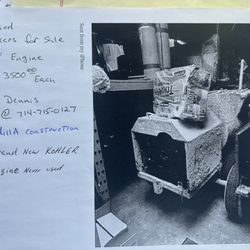 sed
ers for Sale
Engine
3500 00
Each
Dennis
@ 714-715-0127
illA CONSTRUCTION
and New KOHLER
gine Never used
Sent from my iPhone